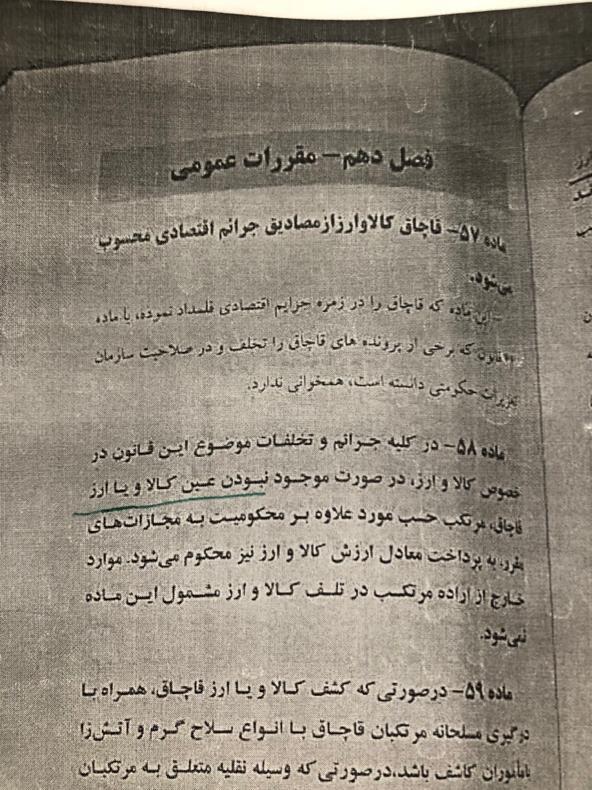 فصل دهم – مقررات عمومی
ماده ۵۷– قاچاق کالا وارز از مصادیق جرائم اقتصادی محسوب
می‌شود.
– این ماده که قاچاق را در زمره جرایم اقتصادی قلمداد نموده، با ماده
قانون که برخی از پرونده های قاچاق را تخلف و در صلاحیت سازمان
تعزیرات حکومتی دانسته است، همخوانی ندارد.
ماده ۵۸– در کلیه جرائم و تخلفات موضوع این قانون در
خصوص کالا و ارز، در صورت موجود نبودن عین کالا و یا ارز
قاچاق، مرتکب حسب مورد علاوه بر محکومیت به مجازات‌های
مقرر، به پرداخت معادل ارزش کالا و ارز نیز محکوم می‌شود. موارد
خارج از اراده مرتکب در تلف کالا و ارز مشمول این ماده
نمی‌شود.
ماده ۵۹– درصورتی‌که کشف کالا و یا ارز قاچاق، همراه با
درگیری مسلحانه مرتکبان قاچاق با انواع سلاح گرم و آتش‌زا
با مأموران کاشف باشد، درصورتی‌که وسیله نقلیه متعلق به مرتکبان